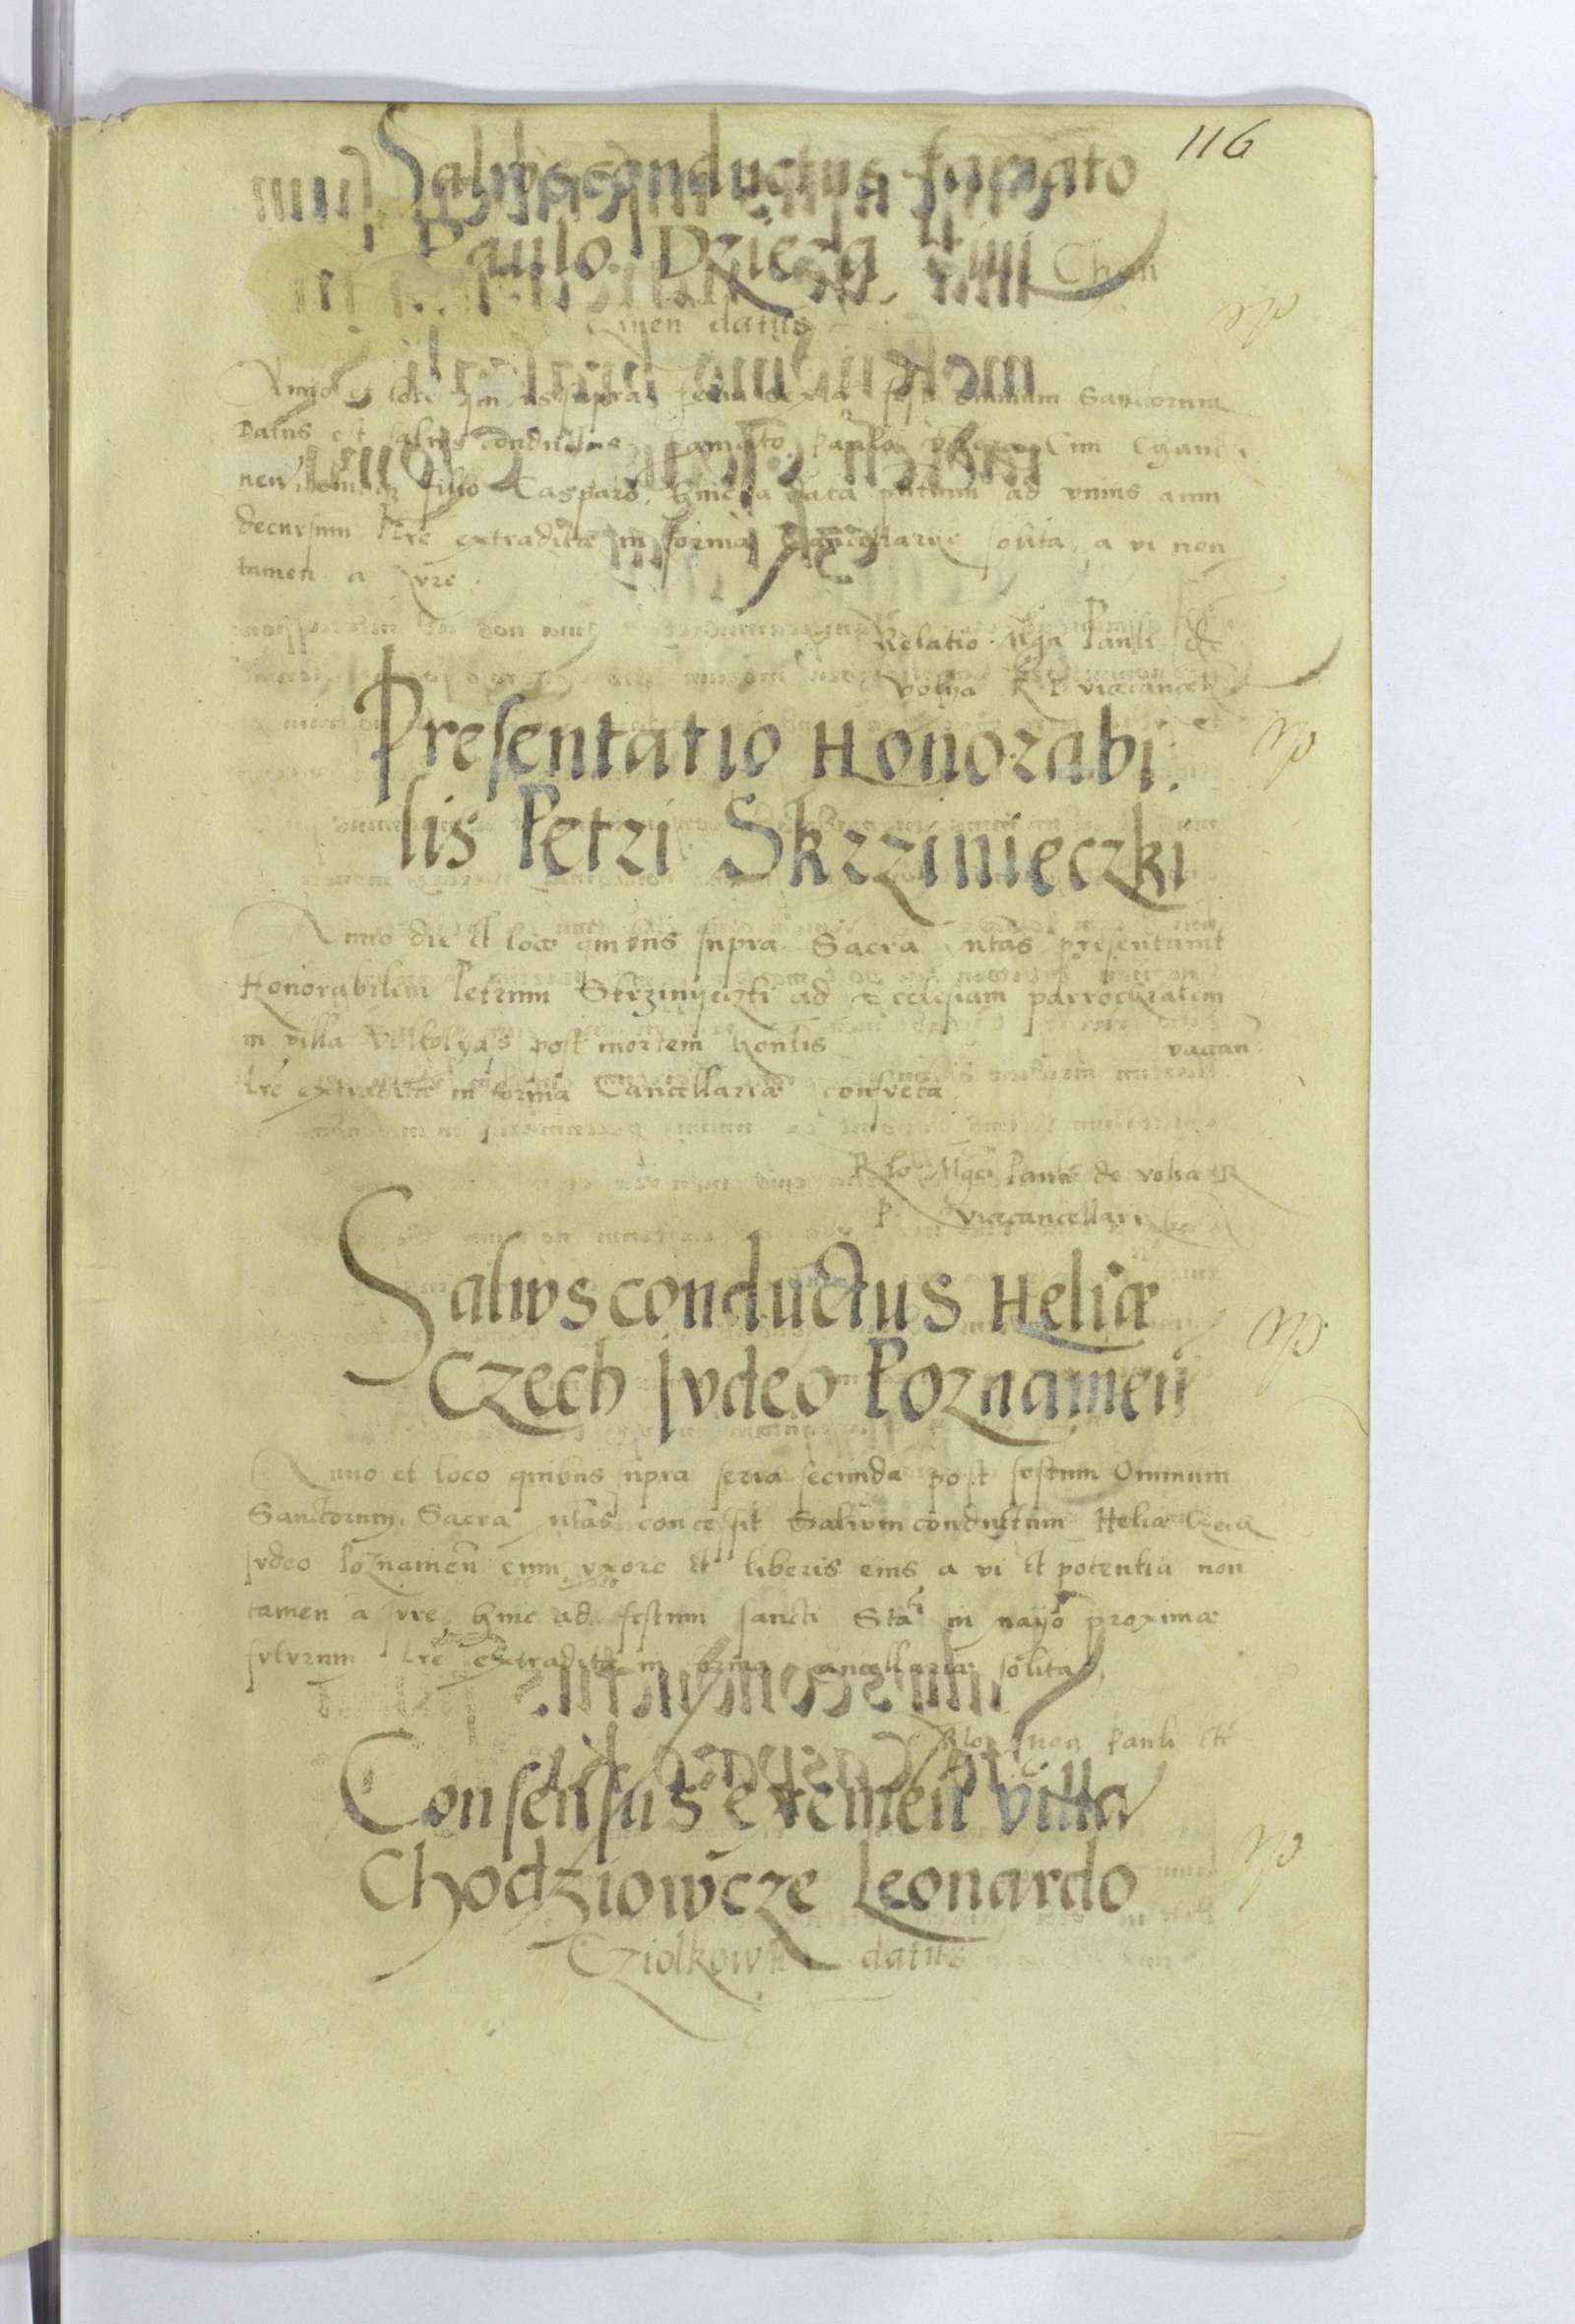 116
Salvosconductus famato
Paulo
datus
Anno et loco quibus supra feria sexta omnium Sanctorum
Datus est salvus conductus famato Paulo
filio Casparo hinc a data ad unius anni
decursum lre extradite in forma Cancellarie solita, a vi non
tamen a iure.
Relatio Pauli de
volya R P vicecancel
Presentatio Honorabi
lis Petri Skrzinieczki
Anno die et loco quibus supra Sacra mtas presentavit
Honorabilem Petrum Skrzinyeczki ad Ecclesiam parrochialem
in villa post mortem hontis vacan
lre extradite in forma Cancellariæ consveta
Rlo Mgci Pauli de volia R
P vicecancellari
Salwsconductus Heliæ
Czech Jvdeo Poznameñ
Anno et loco quibus supra feria secunda post festum Omnium
Sanctorum Sacra mtas concessit Salwmconductum Heliæ Czech
Jvdeo Poznameñ cum vxore et liberis eius a vi et potentia non
tamen a jvre hinc ad festum sancti Stai in mayo proximæ
fvtvrum lre extradite in forma cancellariæ solita
Rlo Pauli etc
Consensus villa
Chodziowcze Leonardo
datus